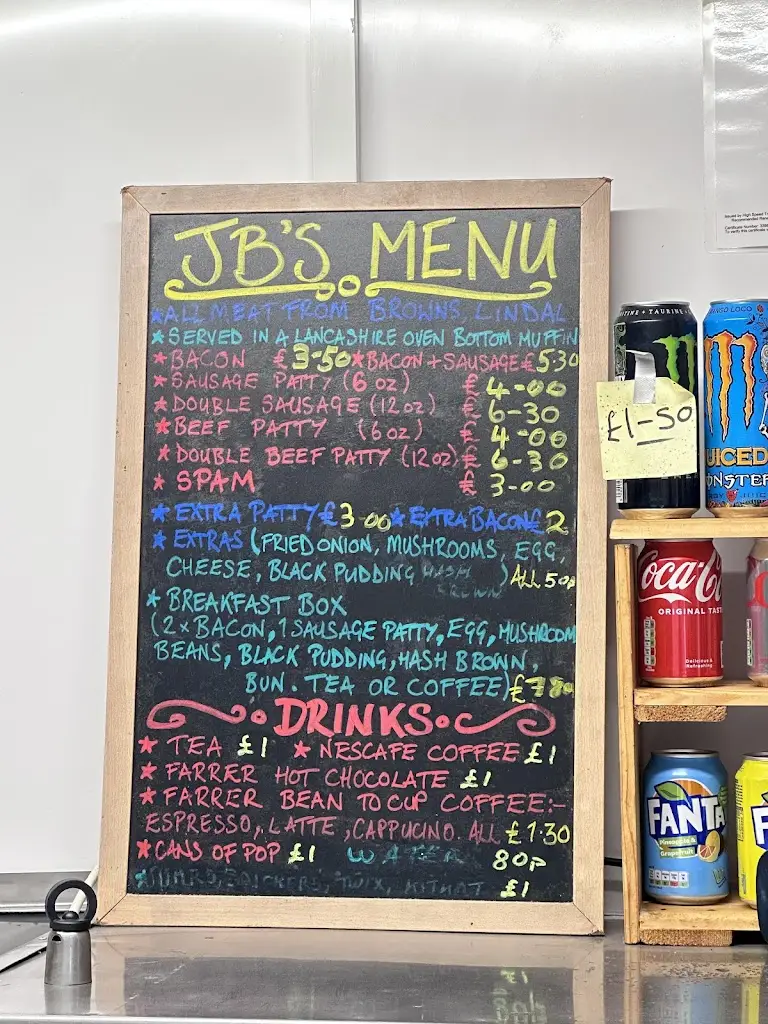 JB'S MENU
★ALL MEAT FROM BROWNS LINDAL
★SERVED IN A LANCASHIRE OVEN BOTTOM MUFFIN
★BACON £3-50 ★BACON + SAUSAGE £5-30
★SAUSAGE PATTY (6 oz) £4-00
★DOUBLE SAUSAGE (12 oz) £6-30
★BEEF PATTY (6 oz) £4-00
★DOUBLE BEEF PATTY (12 oz) £6-30
★SPAM £3-00
★EXTRA PATTY £3-00 ★EXTRA BACON £2
★EXTRAS (FRIED ONION, MUSHROOMS, EGG,
CHEESE, BLACK PUDDING HASH BROWN) ALL 50p
★BREAKFAST BOX
(2 x BACON, 1 SAUSAGE PATTY, EGG, MUSHROOM
BEANS, BLACK PUDDING, HASH BROWN,
BUN. TEA OR COFFEE) £7-80
DRINKS
★TEA £1 ★NESCAFE COFFEE £1
★FARRER HOT CHOCOLATE £1
★FARRER BEAN TO CUP COFFEE:-
ESPRESSO, LATTE, CAPPUCINO. ALL £1-30
★CANS OF POP £1 WATER 80p
SNICKERS, TWIX, KITKAT £1
£1-50
JUICED
MONSTER
Coca-Co
ORIGINAL TAST
Delicious &
Refreshing
FANTA
Pineapple &
Grapefruit